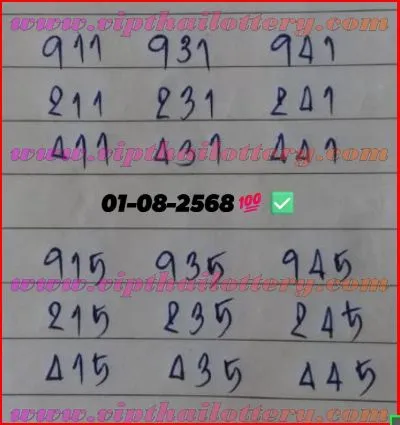 www.vipthailottery.com
911 931 941
211 231 241
411 431 441
www.vipthailottery.com
01-08-2568💯 ✅
915 935 945
www.vipthailottery.com
215 235 245
415 435 445
www.vipthailottery.com